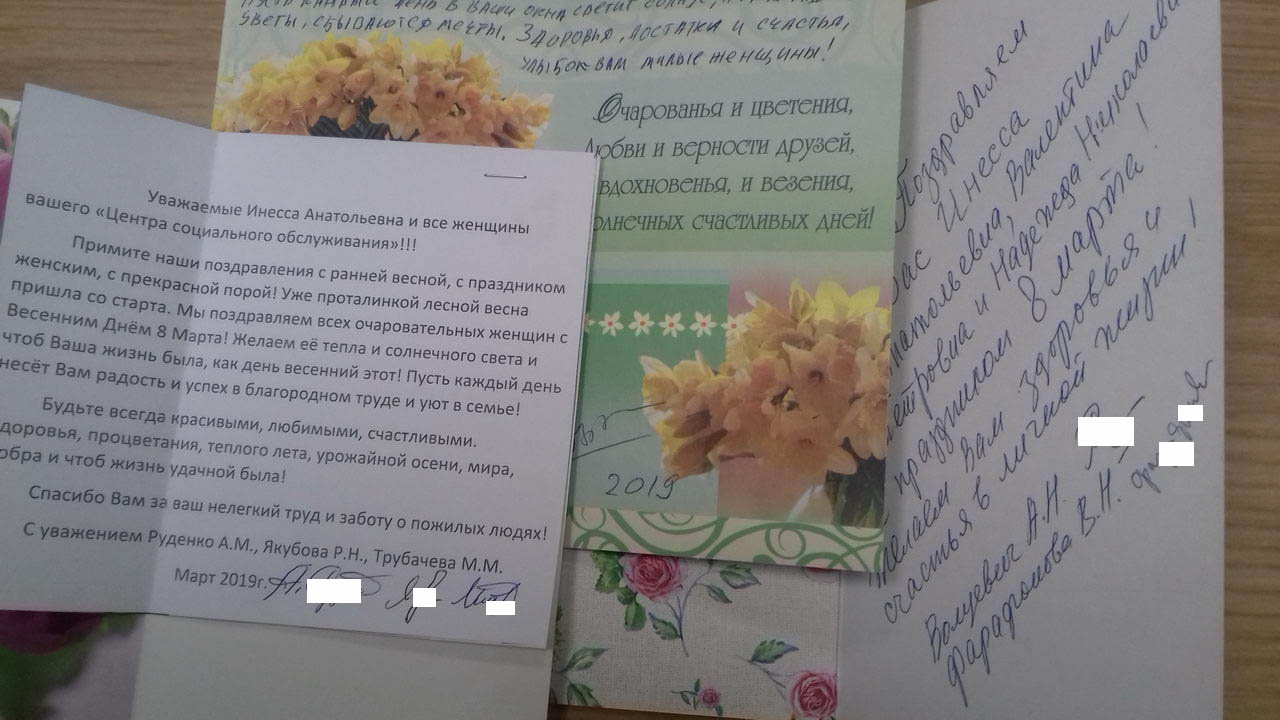 Уважаемые Инесса Анатольевна и все женщины
вашего «Центра социального обслуживания»!!!
Примите наши поздравления с ранней весной, с праздником
женским, с прекрасной порой! Уже проталинкой лесной весна
пришла со старта. Мы поздравляем всех очаровательных женщин с
Весенним Днём 8 Марта! Желаем её тепла и солнечного света и
чтоб Ваша жизнь была, как день весенний этот! Пусть каждый день
несёт Вам радость и успех в благородном труде и уют в семье!
Будьте всегда красивыми, любимыми, счастливыми.
доровья, процветания, теплого лета, урожайной осени, мира,
обра и чтоб жизнь удачной была!
Спасибо Вам за ваш нелегкий труд и заботу о пожилых людях!
С уважением Руденко А.М., Якубова Р.Н., Трубачева М.М.
Март 2019г.
день в ваши окна светит
цветы, сбываются мечты. Здоровья, достатки и счастья,
улыбок вам милые женщины!
Очарованья и цветения,
Любви и верности друзей,
вдохновенья, и везения,
олнечных счастливых дней!
2019
Поздравляем
Вас Инесса
Анатольевна, Валентина
Петровна и Надежда Николаевна
праздником 8 марта!
Желаем Вам здоровья и
счастья в личной жизни!
А.Н.
В.Н.